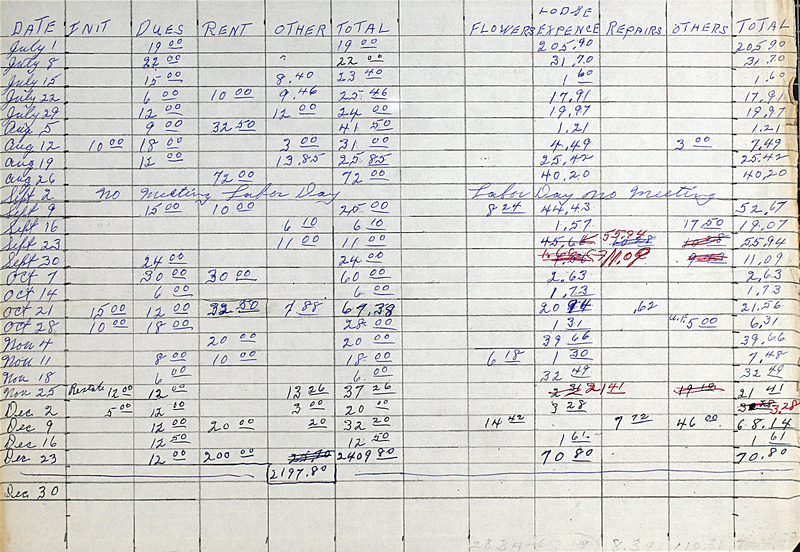 DATE INIT DUES RENT OTHER TOTAL FLOWERS LODGE EXPENCE REPAIRS OTHERS TOTAL
July 1 19 00 19 00 205,90 205 90
July 8 22 00 22 00 31,70 31.70
July 15 15 00 8.40 23 40 1 60 1.60
July 22 6 00 10 00 9.46 25 46 17,91 17,91
July 29 12 00 12 00 24 00 19,97 19,97
Aug 5 9 00 32 50 41 50 1.21 1.21
Aug 12 10 00 18 00 3 00 31 00 4,49 3 00 7,49
Aug 19 12 00 13,85 25 85 25,42 25,42
Aug 26 72 00 72 00 40,20 40,20
Sept 2 No Meeting Labor Day Labor Day no Meeting
Sept 9 15 00 10 00 25 00 8 24 44,43 52,67
Sept 16 6 10 6 10 1.57 17 50 19,07
Sept 23 11 00 11 00 45,66 55,94 10 28 10 28 55,94
Sept 30 24 00 24 00 11,09 11,09
Oct 7 30 00 30 00 60 00 2,63 2,63
Oct 14 6 00 6 00 1,73 1,73
Oct 21 15 00 12 00 32 50 7,88 67,38 20 94 ,62 21,56
Oct 28 10 00 18 00 28 00 1 31 5 00 6,31
Nov 4 20 00 20 00 39 66 39,66
Nov 11 8 00 10 00 18 00 6 18 1 30 7,48
Nov 18 6 00 6 00 32 49 32 49
Nov 25 12 00 12 00 13 26 37 26 21 41 21 41
Dec 2 5 00 12 00 3 00 20 00 3 28 3,28
Dec 9 12 00 20 00 20 32 20 14 42 7 72 46 00 68.14
Dec 16 12 50 12 50 1 61 1 61
Dec 23 12 00 200 00 2409 80 70 80 70,80
2197.80
Dec 30